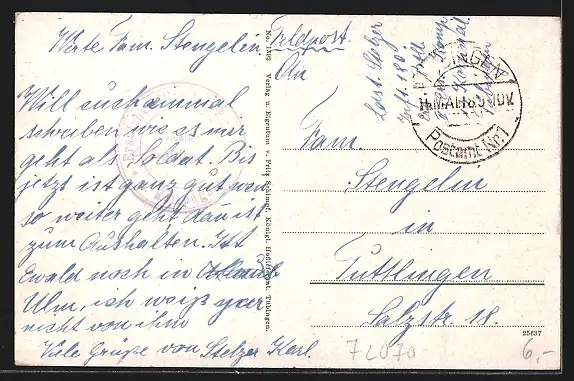 Werte Fam. Stengelin,
Will euch einmal
schreiben wie es mir
geht als Soldat. Bis
jetzt ist ganz gut wen
so weiter geht dan ist
zum Aushalten. Ist
Ewald noch in
Ulm, ich weiß gar
nicht von ihm
Viele Grüße von Stelzer Karl.
No. 1392 Verlag u. Eigentum v. Fritz Schimpf, Königl. Hoflieferant, Tübingen.
Feldpost.
An
Fam.
Stengelin
in
Tuttlingen
Salzstr. 18.
Stelzer
180
INGEN
11.MAI.18.5-10V.
Postamt Nr.1
25637
7L070
6,-